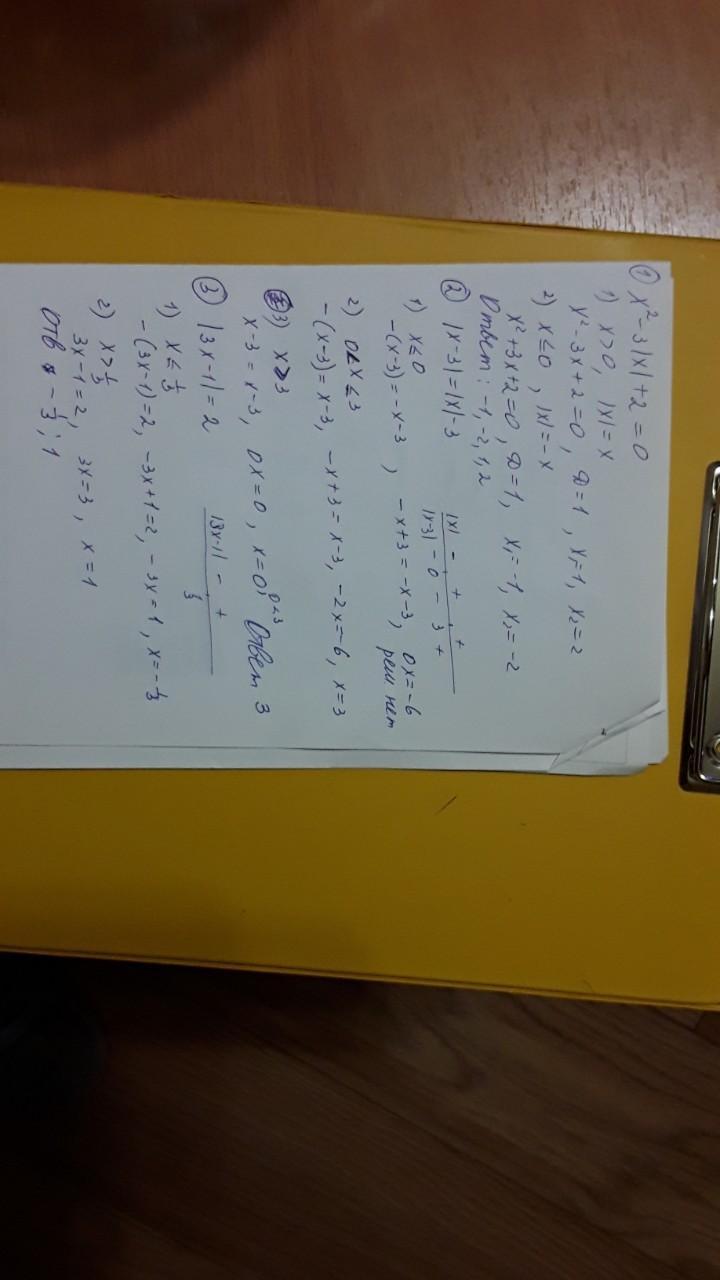 ① x² - 3|x| + 2 = 0
1) x > 0, |x| = x
x² - 3x + 2 = 0, D = 1, x₁ = 1, x₂ = 2
2) x ≤ 0, |x| = -x
x² + 3x + 2 = 0, D = 1, x₁ = -1, x₂ = -2
Ответ: -1, -2, 1, 2
② |x-3| = |x| - 3
|x| - + +
|x-3| - 0 - 3 +
1) x ≤ 0
-(x-3) = -x-3, -x+3 = -x-3, 0x = -6
реш нет
2) 0 < x ≤ 3
-(x-3) = x-3, -x+3 = x-3, -2x = -6, x = 3
3) x > 3
x-3 = x-3, 0x = 0, x = 0, 0 < 3 Ответ 3
③ |3x-1| = 2
|3x-1| - +
⅓
1) x ≤ ⅓
-(3x-1) = 2, -3x+1 = 2, -3x = 1, x = -⅓
2) x > ⅓
3x-1 = 2, 3x = 3, x = 1
Отв -⅓; 1